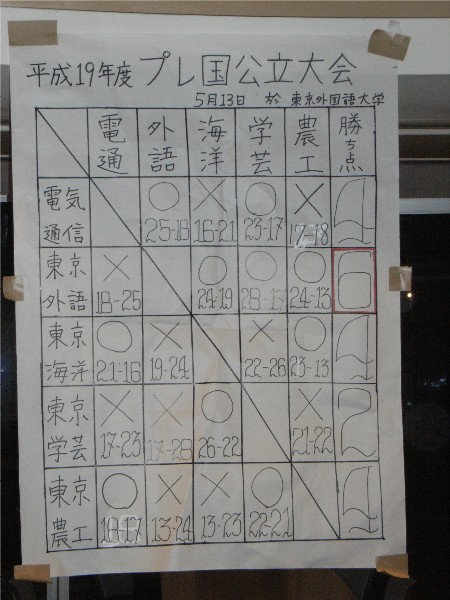 平成19年度 プレ国公立大会
5月13日 於 東京外国語大学
電通 外語 海洋 学芸 農工 勝ち点
電気通信 ○ 25-18 × 16-21 ○ 23-17 × 17-18 4
東京外語 × 18-25 ○ 24-19 ○ 28-17 ○ 24-13 6
東京海洋 ○ 21-16 × 19-24 × 22-26 ○ 23-13 4
東京学芸 × 17-23 × 17-28 ○ 26-22 × 21-22 2
東京農工 ○ 18-17 × 13-24 × 13-23 ○ 22-21 4